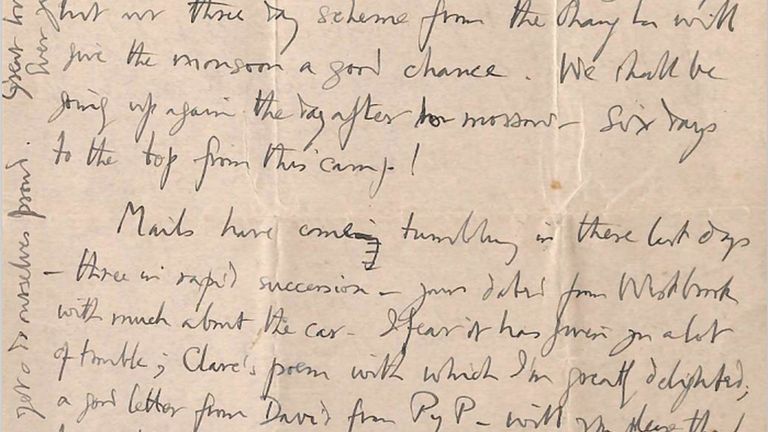 but our three day scheme from the Chang La will
give the monsoon a good chance. We shall be
going up again the day after to morrow – Six days
to the top from this camp!
Mails have come tumbling in these last days
– three in rapid succession – yours dated from Westbrook
with much about the car – I fear it has given you a lot
of trouble; Clare's poem with which I'm greatly delighted;
a good letter from David from PyP – with
get a to ourselves proud. Great
Ever